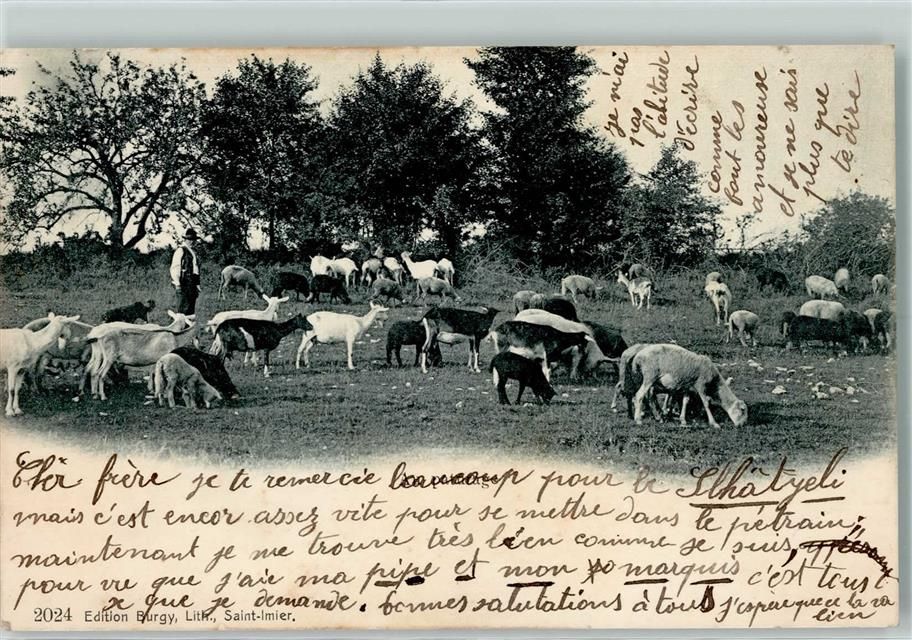 Cher frère je te remercie beaucoup pour le Schätzeli
mais c'est encor assez vite pour se mettre dans le pétrain;
maintenant je me trouve très bien comme je suis,
pour vu que j'aie ma pipe et mon marquis c'est tous
se que je demande. bonnes salutations à tous j'espère que ce la va
bien
je m'ai
pas
l'abitude
d'écrire
comme
font les
amoureuse
et je ne sais
plus que
te dire.
2024 Edition Burgy, Lith., Saint-Imier.